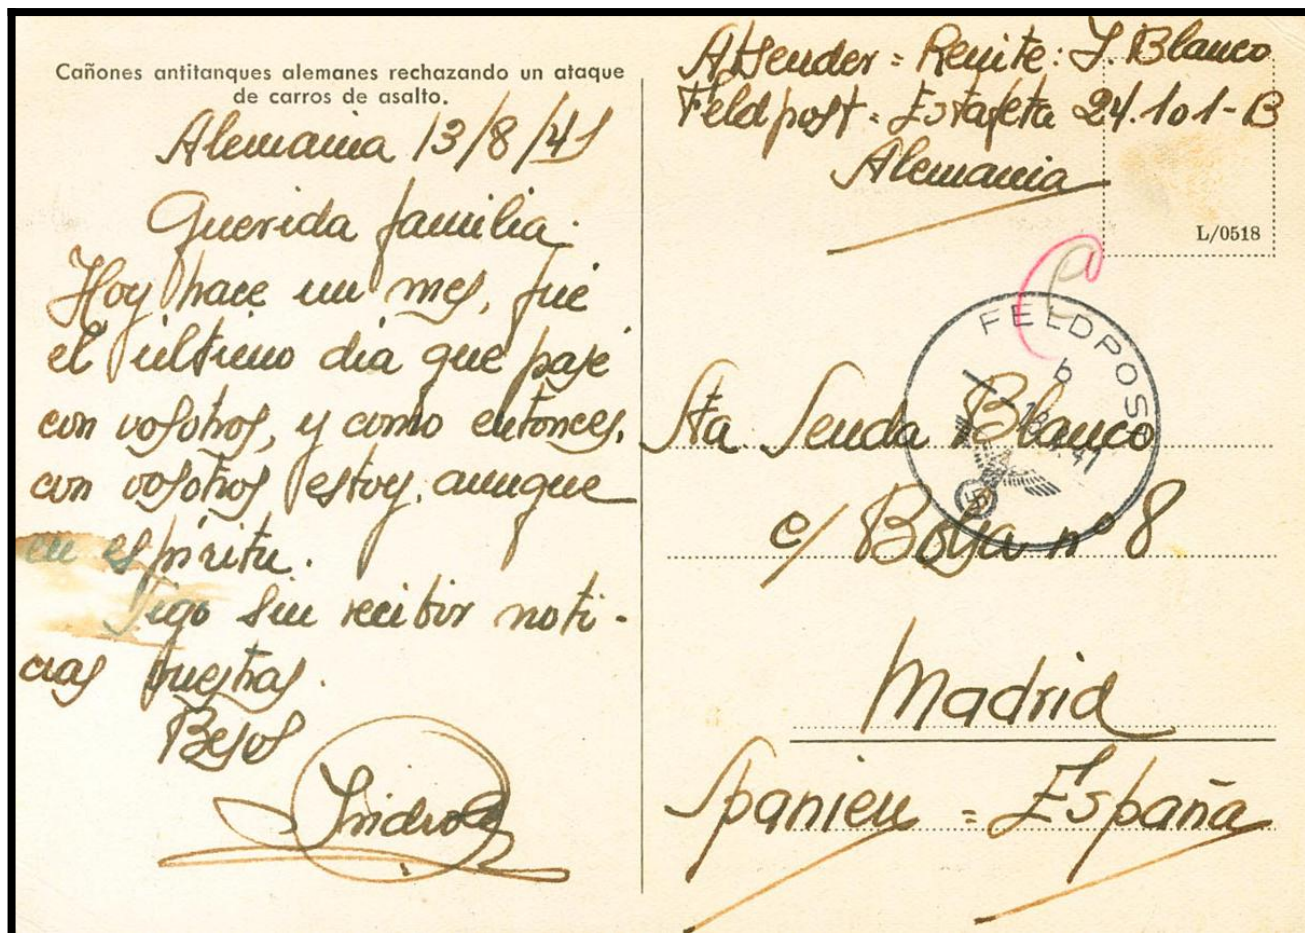 Cañones antitanques alemanes rechazando un ataque
de carros de asalto.
Alemania 13/8/41
Querida familia:
Hoy hace un mes, fué
el último dia que pasé
con vosotros, y como entonces,
con vosotros estoy, aunque
en espiritu.
Sigo sin recibir noti-
cias vuestras.
Besos
Isidro
Absender = Remite: I. Blanco
Feldpost = Estafeta 24.101-B
Alemania
L/0518
FELDPOST
b
13. 41
Sta. Senda Blanco
c/ Bolsa nº 8
Madrid
Spanien = España